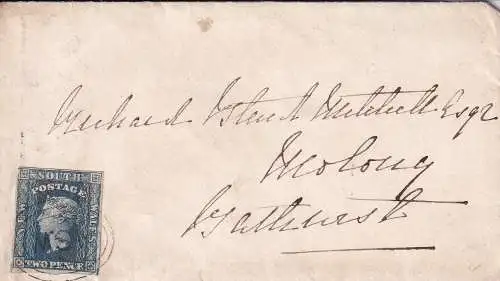 Richard Stuart Mitchell Esqr
Molong
Bathurst
SOUTH
POSTAGE
NEW
WALES
TWO PENCE